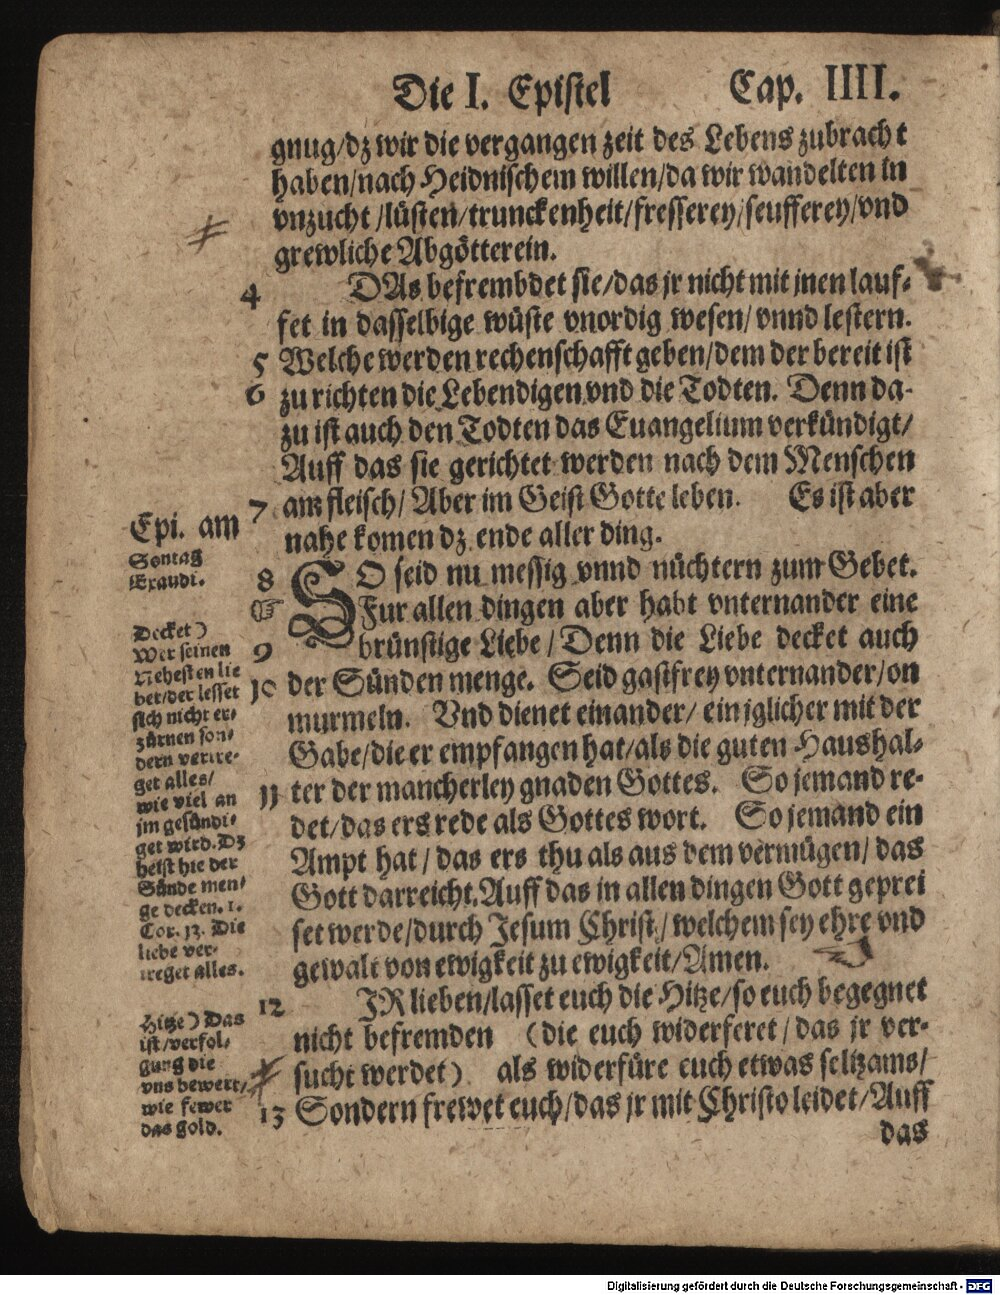 Die I. Epistel Cap. IIII.
gnug/dz wir die vergangen zeit des Lebens zubracht
haben/nach Heidnischem willen/da wir wandelten in
vnzucht/lüsten/trunckenheit/fresserey/seufferey/vnd
grewliche Abgötterein.
4 DAs befrembdet sie/das jr nicht mit jnen lauf-
fet in dasselbige wüste vnordig wesen/vnnd lestern.
5 Welche werden rechenschafft geben/dem der bereit ist
6 zu richten die Lebendigen vnd die Todten. Denn da-
zu ist auch den Todten das Euangelium verkündigt/
Auff das sie gerichtet werden nach dem Menschen
7 am fleisch/Aber im Geist Gotte leben. Es ist aber
nahe komen dz ende aller ding.
Epi. am
Sontag
Exaudi.
8 SO seid nu messig vnnd nüchtern zum Gebet.
☞ Fur allen dingen aber habt vnternander eine
9 brünstige Liebe/Denn die Liebe decket auch
10 der Sünden menge. Seid gastfrey vnternander/on
murmeln. Vnd dienet einander/ein jglicher mit der
Gabe/die er empfangen hat/als die guten Haushal-
11 ter der mancherley gnaden Gottes. So jemand re-
det/das ers rede als Gottes wort. So jemand ein
Ampt hat/das ers thu als aus dem vermügen/das
Gott darreicht. Auff das in allen dingen Gott geprei
set werde/durch Jesum Christ/welchem sey ehre vnd
gewalt von ewigkeit zu ewigkeit/Amen.
Decket)
Wer seinen
Nehesten lie
bet/der lesset
sich nicht er-
zürnen son-
dern vertre-
get alles/
wie viel an
jm gesündi-
get wird. Dz
heist hie der
Sünde men-
ge decken. 1.
Cor. 13. Die
liebe ver-
treget alles.
12 JR lieben/lasset euch die Hitze/so euch begegnet
nicht befremden (die euch widerferet/das jr ver-
sucht werdet) als widerfüre euch etwas seltzams/
13 Sondern frewet euch/das jr mit Christo leidet/Auff
das
Hitze) Das
ist/verfol-
gung die
vns bewert/
wie fewer
das gold.
Digitalisierung gefördert durch die Deutsche Forschungsgemeinschaft - DFG